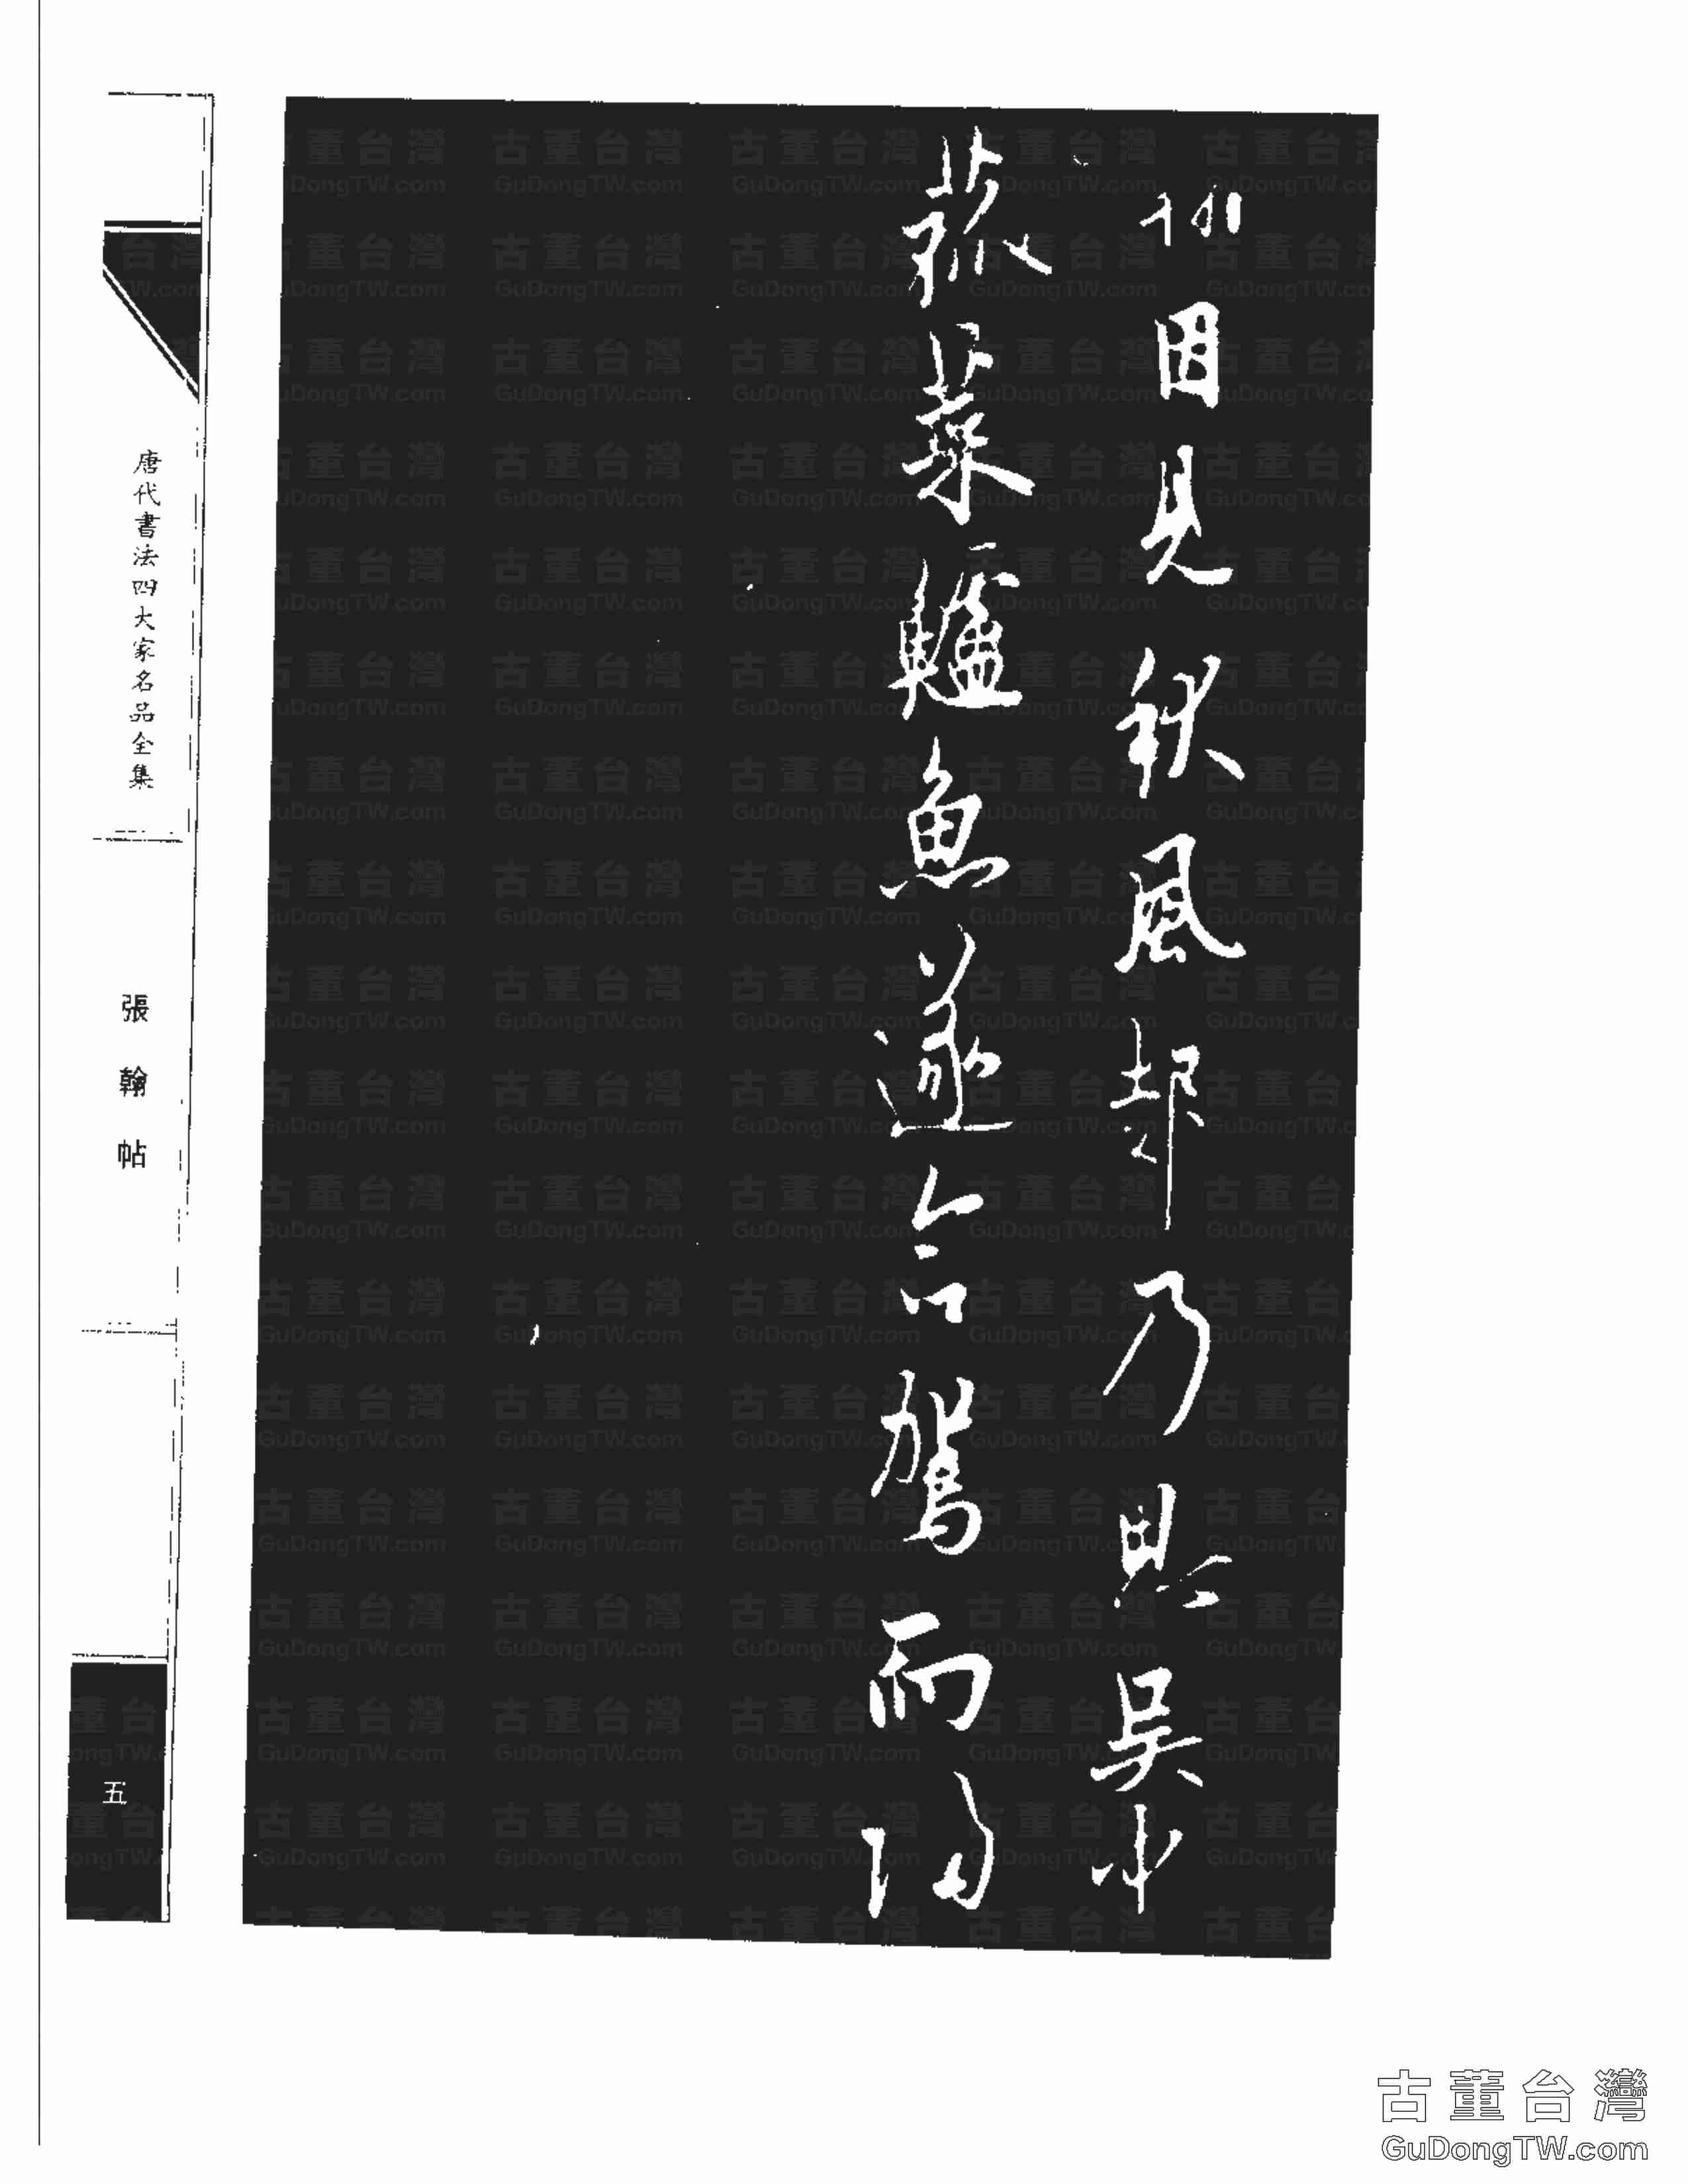 翰因見秋風起乃思吳中
菰菜鱸魚遂命駕而歸
唐代書法四大家名品全集
張翰帖
五
古董台灣
GuDongTW.com